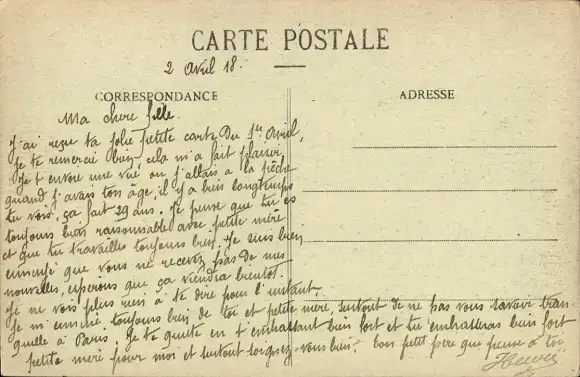 CARTE POSTALE
2 Avril 18.
CORRESPONDANCE
ADRESSE
Ma chere fille
J'ai reçu ta jolie petite carte du 1er Avril,
je te remercie bien, cela m'a fait plaisir,
je t'envoie une vue ou j'allais a la pêche
quand j'avais ton âge, il y a bien longtemps
tu vois, ça fait 29 ans. Je pense que tu es
toujours bien raisonnable avec petite mère
et que tu travailles toujours bien. Je suis bien
ennuyé que vous ne recevez pas de mes
nouvelles, esperons que ça viendra bientôt.
Je ne vois plus rien à te dire pour l'instant,
je m'ennuie toujours bien de toi et petite mère, surtout de ne pas vous savoir tran-
quille à Paris. Je te quitte en t'embrassant bien fort et tu embrasseras bien fort
petite mère pour moi et surtout soignez-vous bien. Ton petit père qui pense à toi